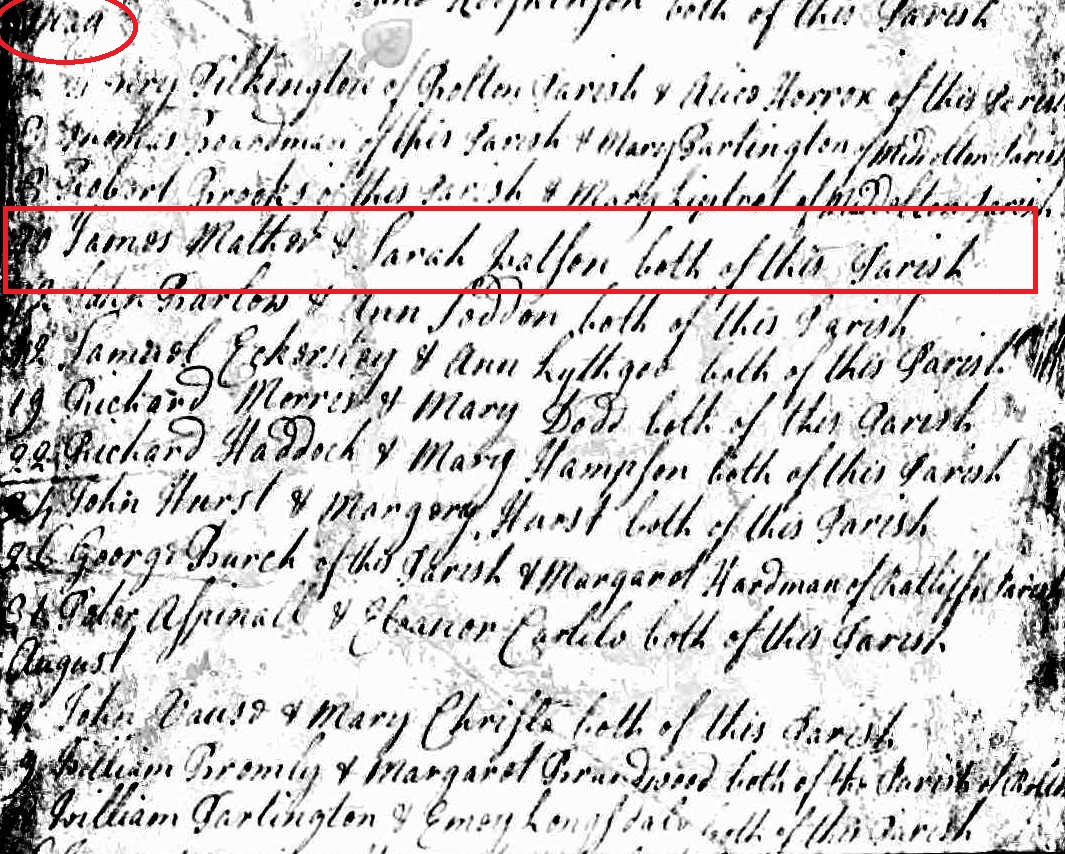 both of this Parish
Pilkington of Bolton Parish & Alice Horrox of this Parish
Thomas Boardman of this Parish & Mary Partington of Middleton Parish
Robert Brooks of this Parish & Mary of Middelton Parish
James Mather & Sarah Watson both of this Parish
John Barlow & Ann Soddon both of this Parish
12 Samuel Eckersley & Ann Lythgoe both of this Parish
19 Richard Morris & Mary Dodd both of this Parish
22 Richard Haddock & Mary Hampson both of this Parish
24 John Hurst & Margery Hurst both of this Parish
26 George Burch of this Parish & Margaret Hardman of Ratliffe Parish
31 Peter Aspinall & Eleanor both of this Parish
August
John Vause & Mary Christe both of this Parish
9 William Bromly & Margaret Brandwood both of the Parish of
William Partington & Emey Longsdale both of this Parish